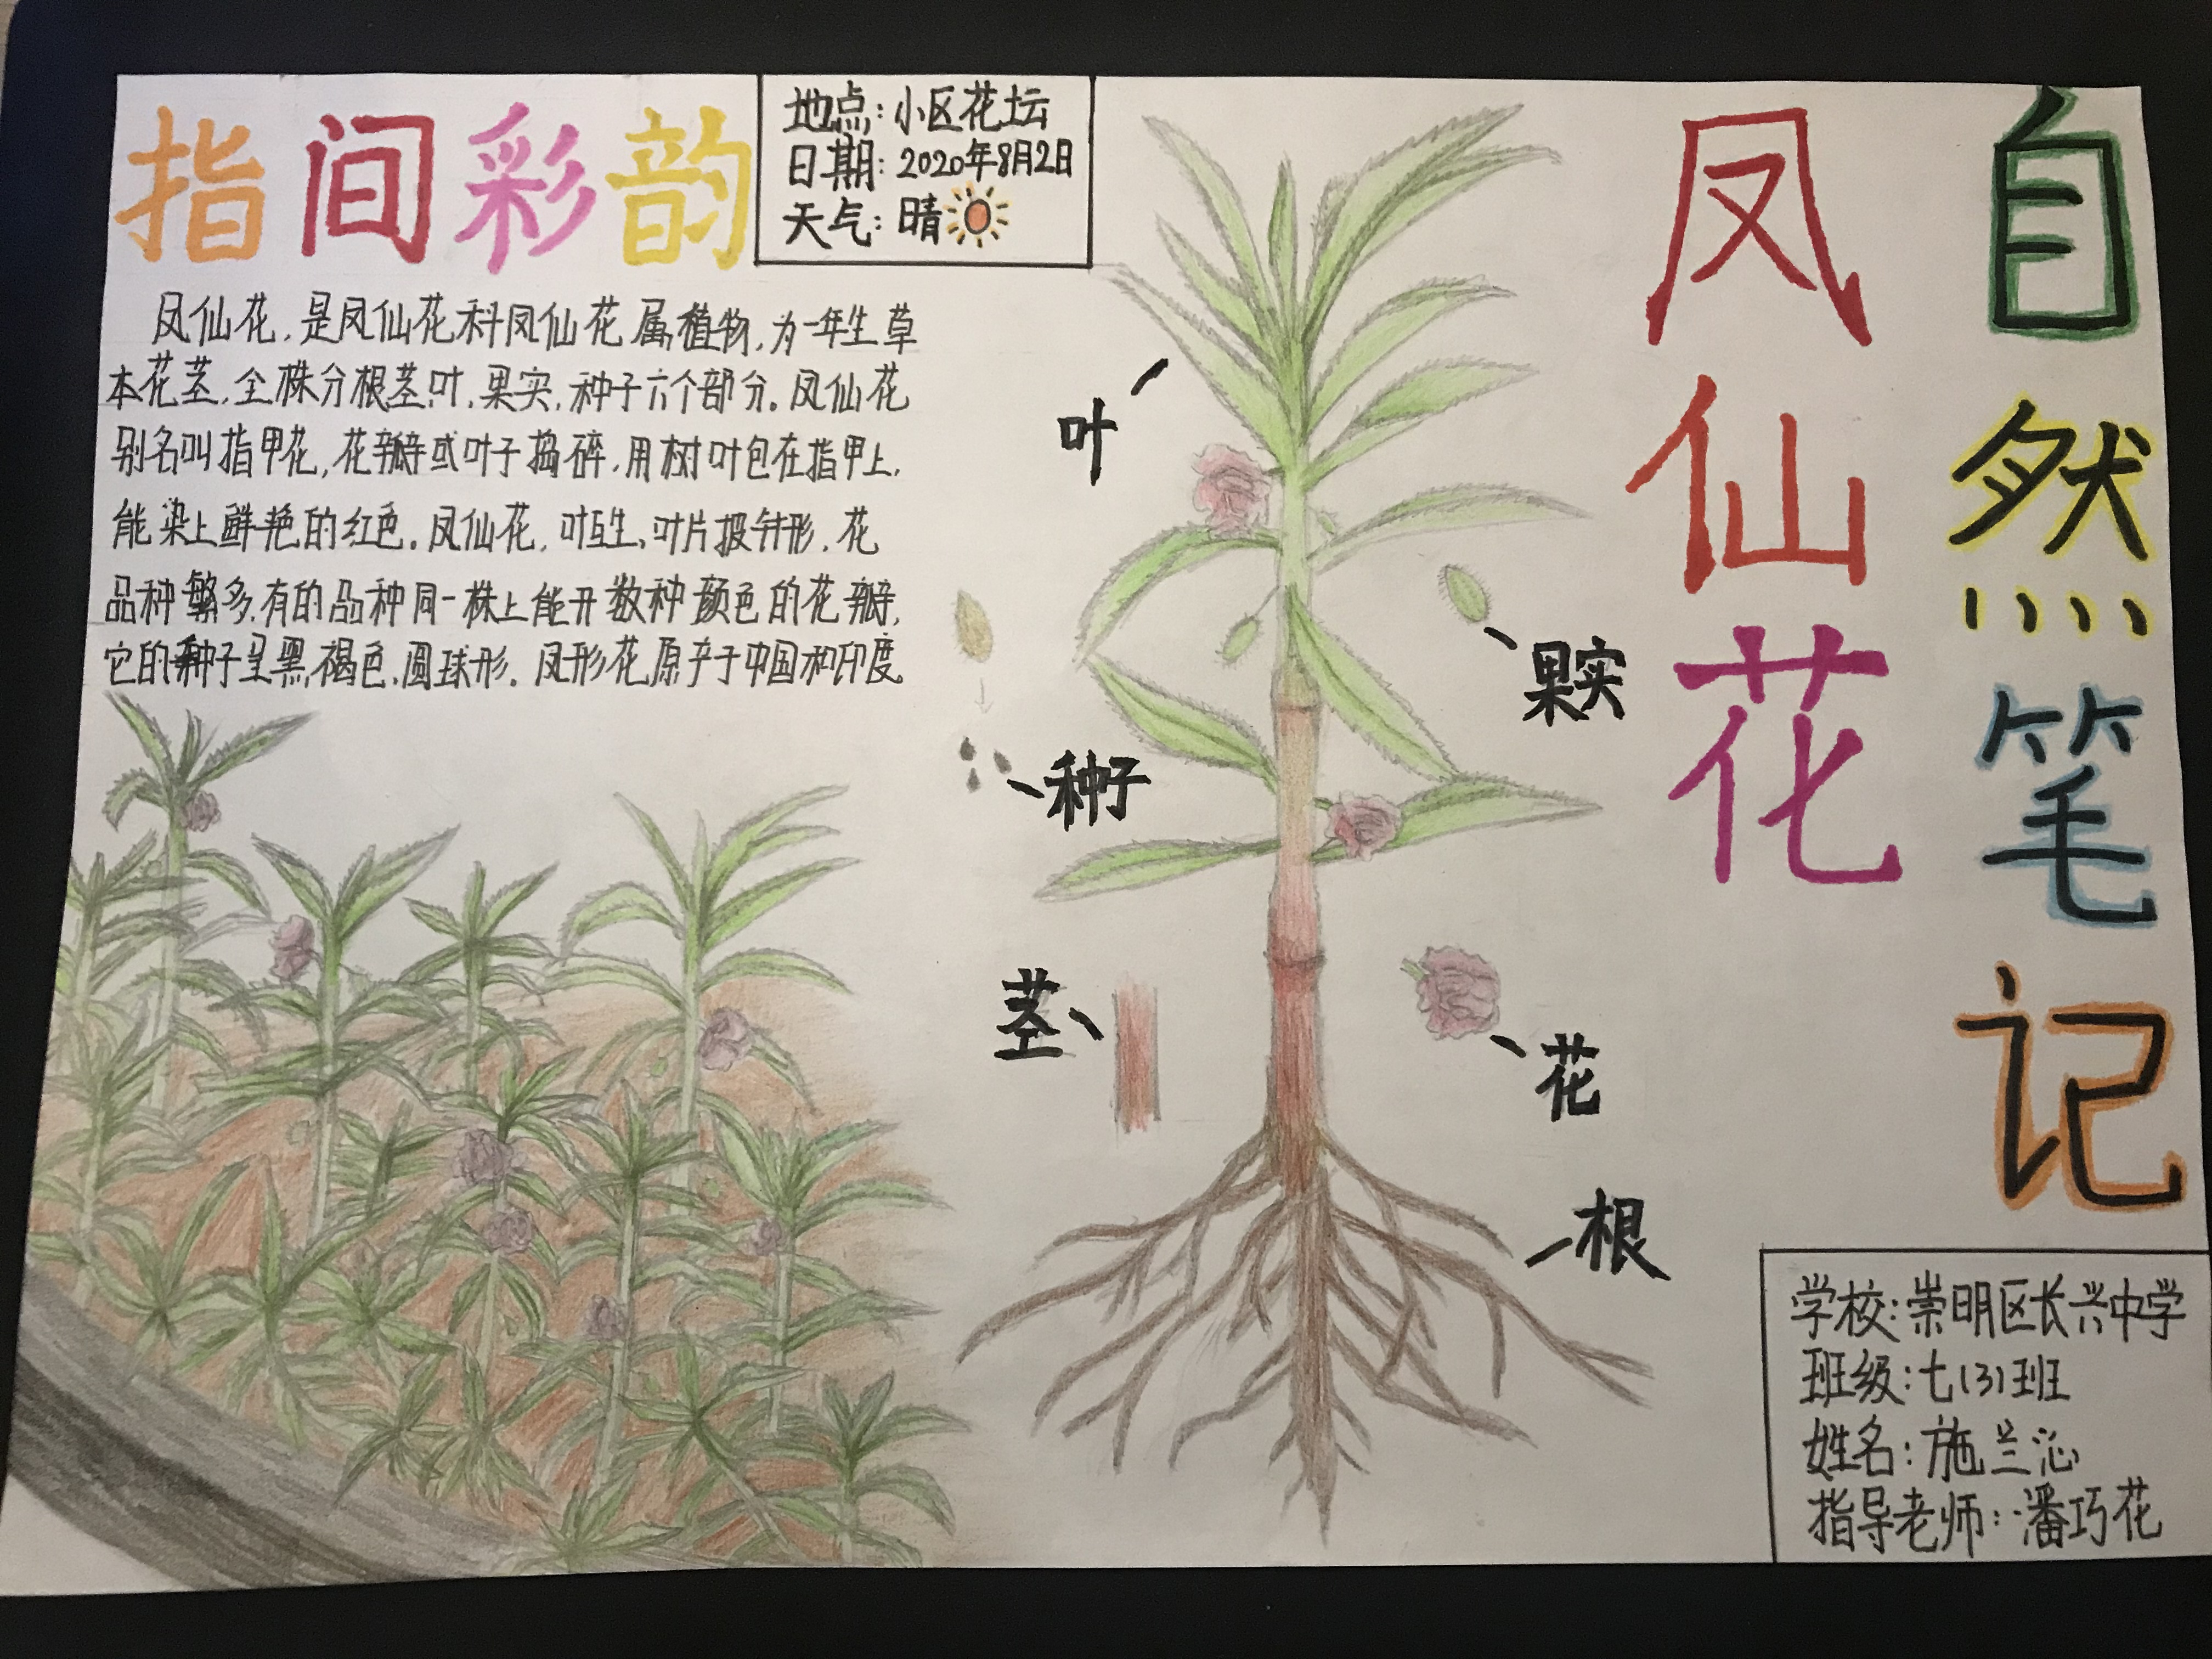 自然笔记
凤仙花
指间彩韵
地点：小区花坛
日期：2020年8月2日
天气：晴
凤仙花，是凤仙花科凤仙花属植物，为一年生草
本花茎，全株分根茎，叶，果实，种子六个部分。凤仙花
别名叫指甲花，花瓣或叶子捣碎，用树叶包在指甲上，
能染上鲜艳的红色。凤仙花，叶互生、叶片披针形，花
品种繁多，有的品种同一株上能开数种颜色的花瓣，
它的种子呈黑，褐色，圆球形。凤形花原产于中国和印度
叶
果实
种子
茎
花
根
学校：崇明区长兴中学
班级：七(3)班
姓名：施兰沁
指导老师：潘巧花